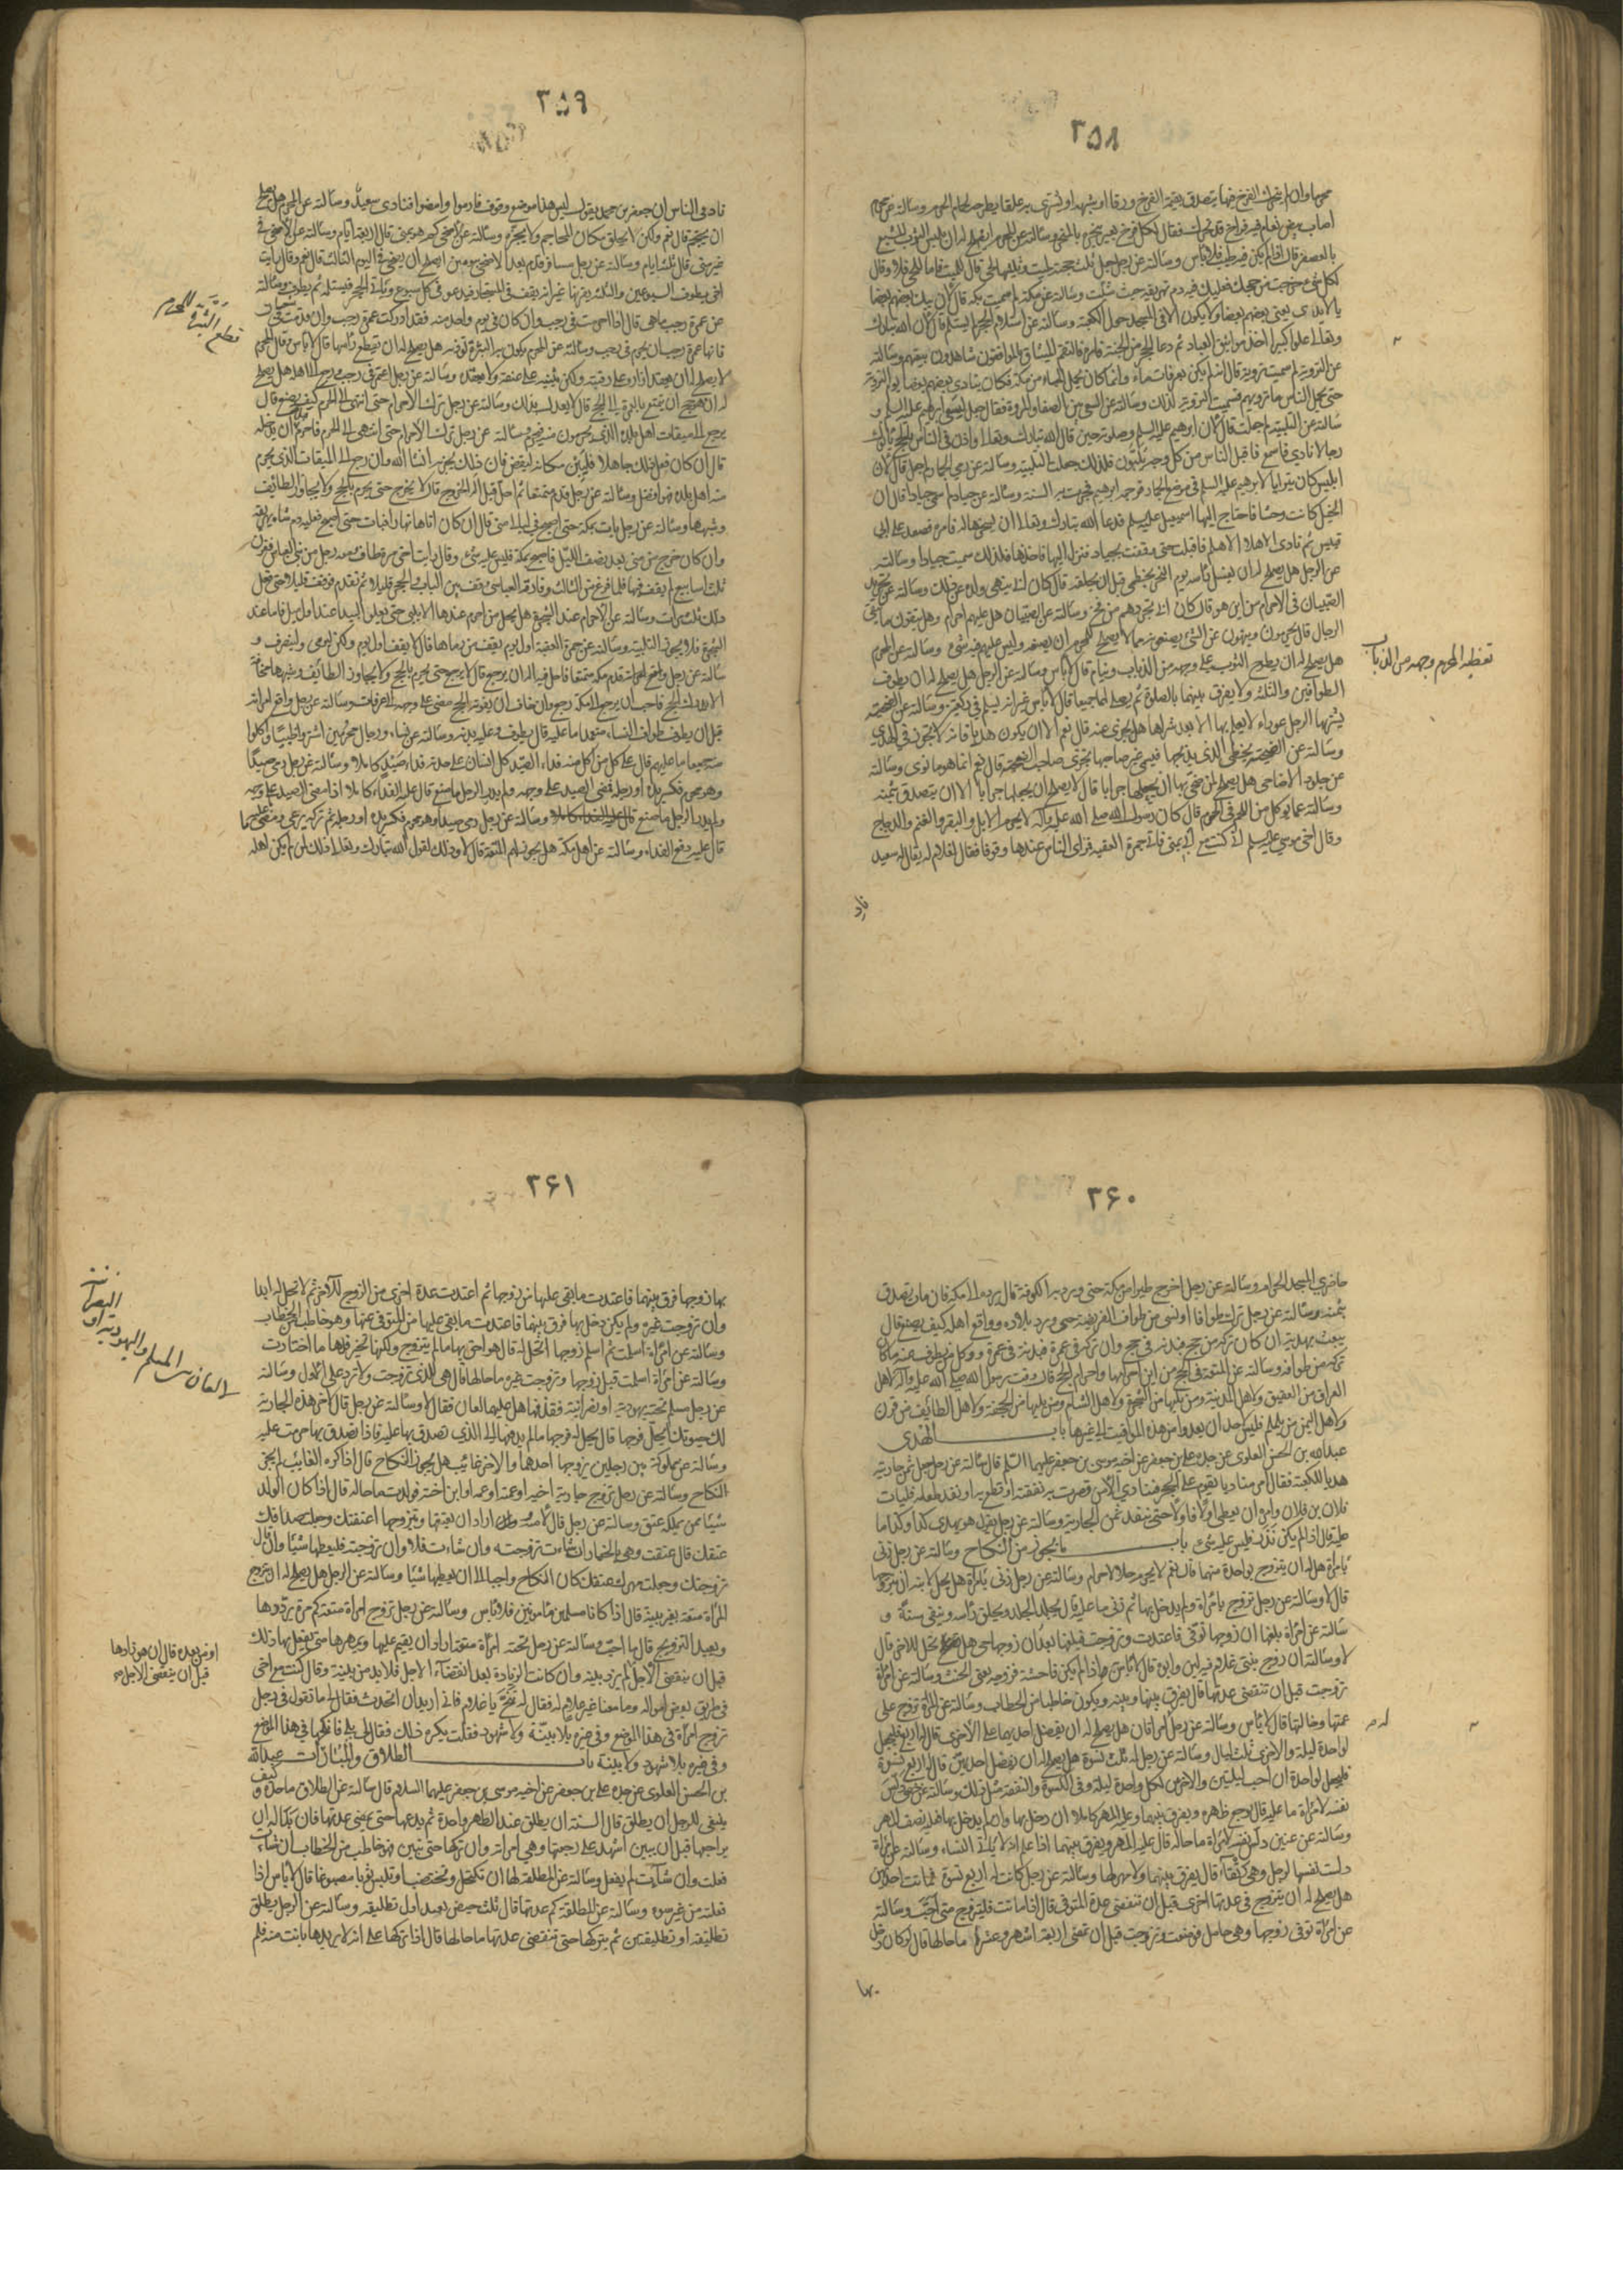 ٢٥٨
وان لم يتحرك الفرخ فيها يتصدق بقيمة الفرخ ورقا او شبهه او يشترى به علفا يطرحه لحمام الحرم وسالته عن محرم
اصاب بيض نعام فيه فراخ قد تحرك فقال لكل فرخ بعير ينحره بالمنحر وسالته عن المحرم ايصلح له ان يلبس الثوب المشبع
بالعصفر قال اذا لم يكن فيه طيب فلا باس وسالته عن رجل جعل ثلث حجته لميت وثلثيها لحى قال للميت فاما للحى فلا وقال
لكل شئ خرجت من حجك فعليك فيه دم تهريقه حيث شئت وسالته عن مكة لم سميت بكة قال لان الناس يبك بعضهم بعضا
بالايدى يعنى يدفع بعضهم بعضا ولا يكون الا فى المسجد حول الكعبة وسالته عن استلام الحجر لم يستلم قال لان الله تبارك
وتعالى علوا كبيرا اخذ مواثيق العباد ثم دعا الحجر من الجنة فامره فالتقم الميثاق فالموافون شاهدون ببيعتهم وسالته
عن التروية لم سميت تروية قال انه لم يكن بعرفات ماء وانما كان يحمل الماء من مكة فكان ينادى بعضهم بعضا يوم التروية
حتى يحمل الناس ما يرويهم فسميت التروية لذلك وسالته عن السعى بين الصفا والمروة فقال جعل لسعى ابرهيم عليه السلم و
سالته عن التلبية لم جعلت قال لان ابرهيم عليه السلم حين قال الله تبارك وتعالى واذن فى الناس بالحج ياتوك
رجالا نادى فاسمع فاقبل الناس من كل وجه يلبون فلذلك جعلت التلبية وسالته عن رمى الجمار لم جعل قال لان
ابليس كان يترايا لابرهيم عليه السلم فى موضع الجمار فرجمه ابرهيم فجرت به السنة وسالته عن جياد لم سمى جيادا قال ان
الخيل كانت وحشا فاحتاج اليها اسمعيل عليه السلم فدعا الله تبارك وتعالى ان يسخرها له فامره فصعد على ابى
قبيس ثم نادى الا هلا الا هلم فاقبلت حتى وقفت بجياد فنزل اليها فاخذها فلذلك سميت جيادا وسالته
عن الرجل هل يصلح له ان يغسل راسه يوم النحر بخطمى قبل ان يحلقه قال كان ابى ينهى ولده عن ذلك وسالته عن تجريد
الصبيان فى الاحرام من اين هو قال كان ابى يجردهم من فخ وسالته عن الصبيان هل عليهم احرام وهل يتقون ما يتقى
الرجال قال يحرمون وينهون عن الشئ يصنعونه مما لا يصلح للمحرم ان يصنعه وليس عليهم فيه شئ وسالته عن المحرم
هل يصلح له ان يطرح الثوب على وجهه من الذباب وينام قال لا باس وسالته عن الرجل هل يصلح له ان يطوف
الطوافين والثلثة ولا يفرق بينهما بالصلوة ثم يصلى لها جميعا قال لا باس غير انه يسلم فى كل ركعتين وسالته عن الضحية
يشتريها الرجل عوراء لا يعلم بها الا بعد شراها هل يجزى عنه قال نعم الا ان يكون هديا فانه لا يجوز فى الهدى
وسالته عن الضحية يخطى الذى يذبحها فيسمى غير صاحبها تجزى صاحب الضحية قال نعم انما هو ما نوى وسالته
عن جلود الاضاحى هل يصلح لمن ضحى بها ان يجعلها جرابا قال لا يصلح ان يجعلها جرابا الا ان يتصدق بثمنه
وسالته عما يوكل من اللحم فى الحرم قال كان رسول الله صلى الله عليه وآله لا يحرم الابل والبقر والغنم والدجاج
وقال اخى موسى عليه السلم انى كنت مع ابى بمنى فاتى جمرة العقبة فراى الناس عندها وقوفا فقال لغلام له يقال له سعيد
ناد
تغطيه المحرم وجهه من الذباب
٣٥٩
ناد فى الناس ان جعفر بن محمد يقول ليس هذا موضع وقوف فارموا وامضوا فنادى سعيد وسالته عن المحرم هل يصلح
ان يحتجم قال نعم ولكن لا يحلق مكان المحاجم ولا يجزه وسالته عن الاضحى كم هو بمنى قال اربعة ايام وسالته عن الاضحى فى
غير منى قال ثلثة ايام وسالته عن رجل مسافر قدم بعد الاضحى بيومين ايصلح ان يضحى فى اليوم الثالث قال نعم وقال رايت
اخى يطوف السبوعين والثلثة يقرنها غير انه يقف فى المستجار فيدعو فى كل سبوع وياتى الحجر فيستلمه ثم يطوف وسالته
عن عمرة رجب ما هى قال اذا احرمت فى رجب وان كان فى يوم واحد منه فقد ادركت عمرة رجب وان قدمت فى شعبان
فانها عمرة رجب ان تحرم فى رجب وسالته عن المحرم يكون به البثرة توذيه هل يصلح له ان يقطع راسها قال لا باس وقال المحرم
لا يصلح له ان يعقد ازاره على رقبته ولكن يثنيه على عنقه ولا يعقده وسالته عن رجل اعتمر فى رجب ورجع الى اهله هل يصلح
له ان هو حج ان يتمتع بالعمرة الى الحج قال لا يعدل بذلك وسالته عن رجل ترك الاحرام حتى انتهى الى الحرم كيف يصنع قال
يرجع الى ميقات اهل بلده الذى يحرمون منه فيحرم وسالته عن رجل ترك الاحرام حتى انتهى الى الحرم فاحرم قبل ان يدخله
قال ان كان فعل ذلك جاهلا فليبن مكانه ليقضى فان ذلك يجزيه انشا الله وان رجع الى الميقات الذى يحرم
منه اهل بلده فهو افضل وسالته عن رجل قدم متمتعا ثم احل قبل ذلك الخروج قال لا يخرج حتى يحرم بالحج ولا يجاوز الطايف
وشبهها وسالته عن رجل بات بمكة حتى اصبح فى ليالى منى قال ان كان اتاها نهارا فبات حتى اصبح فعليه دم شاة يهريقه
وان كان خرج من منى بعد نصف الليل فاصبح بمكة فليس عليه شئ وقال رايت اخى مرة طاف ومعه رجل من بنى العباس فقرن
ثلث اسابيع لم يقف فيها فلما فرغ من الثالث وفارقه العباسى وقف بين الباب والحجر قليلا ثم تقدم فوقف قليلا حتى فعل
ذلك ثلث مرات وسالته عن الاحرام عند الشجرة هل يحل لمن احرم عندها الا يلبى حتى يعلو البيداء عند اول ميل فاما عند
الشجرة فلا يجوز التلبية وسالته عن جمرة العقبة اول يوم يقف من رماها قال لا يقف اول يوم ولكن ليرمى ولينصرف و
سالته عن رجل قدم مكة متمتعا فاحل فيه اله ان يرجع قال لا يرجع حتى يحرم بالحج ولا يجاوز الطائف وشبهها مخافة
الا يدرك الحج فاحب ان يرجع الى مكة رجع وان خاف ان يفوته الحج مضى على وجهه الى عرفات وسالته عن رجل واقع امراته
قبل ان يطوف طواف النساء متعمدا ما عليه قال يطوف وعليه بدنة وسالته عن نساء ورجال محرمين اشتروا ظبيا فاكلوا
منه جميعا ما عليهم قال على كل من اكل منه فداء الصيد كل انسان على حدته فداء صيد كاملا وسالته عن رجل رمى صيدا
وهو محرم فكسر يده او رجله فمضى الصيد على وجهه ولم يدر الرجل ما صنع قال عليه الفداء كاملا اذا مضى الصيد على وجهه
ولم يدر الرجل ما صنع وسالته عن رجل رمى صيدا وهو محرم فكسر يده او رجله ثم تركه يرعى ومضى
قال عليه دفع الفداء وسالته عن اهل مكة هل يجوز لهم المتعة قال لا وذلك لقول الله تبارك وتعالى ذلك لمن لم يكن اهله
قطع البثرة للمحرم
٢۶٠
حاضرى المسجد الحرام وسالته عن رجل اخرج طيرا من مكة حتى ورد به الكوفة قال يرده الى مكة فان مات تصدق
بثمنه وسالته عن رجل ترك طوافا او نسى من طواف الفريضة حتى ورد بلاده وواقع اهله كيف يصنع قال
يبعث بهديه ان كان تركه من حج فبدنة فى حج وان تركه فى عمرة فبدنة فى عمرة ووكل من يطوف عنه ما كان
تركه من طوافه وسالته عن المتعة فى الحج من اين احرامها واحرام الحج قال وقت رسول الله صلى الله عليه وآله لاهل
العراق من العقيق ولاهل المدينة ومن يليها من الشجرة ولاهل الشام ومن يليها من الجحفة ولاهل الطائف من قرن
ولاهل اليمن من يلملم فليس لاحد ان يعدوا من هذه المواقيت الى غيرها باب الهدى
عبدالله بن الحسن العلوى عن جده على بن جعفر عن اخيه موسى بن جعفر عليهما السلم قال سالته عن رجل جعل ثمن جاريته
هديا للكعبة فقال مر مناديا يقوم على الحجر فينادى الا من قصرت به نفقته او قطع به او نفد طعامه فليات
فلان بن فلان وامره ان يعطى اولا فاولا حتى ينفد ثمن الجارية وسالته عن رجل يقول هو يهدى كذا وكذا ما
عليه قال اذا لم يكن نذر فليس عليه شئ باب ما يجوز من النكاح وسالته عن رجل زنى
بامراة هل له ان يتزوج بواحدة منهما قال نعم لا يحرم حلالا حرام وسالته عن رجل زنى بامراة هل يحل لابنه ان يتزوجها
قال لا وسالته عن رجل تزوج بامراة ولم يدخل بها ثم زنى ما عليه قال يجلد الجلد ويحلق راسه وينفى سنة و
سالته عن امراة بلغها ان زوجها توفى فاعتدت وتزوجت فبلغها بعد ان زوجها حى هل تحل للاخر قال
لا وسالته ان زوج بنتى غلام فيه لين وابوه قال لا باس اذا لم يكن فاحشة فزوجه يعنى الخنث وسالته عن امراة
تزوجت قبل ان تنقضى عدتها قال يفرق بينها وبينه ويكون خاطبا من الخطاب وسالته عن المراة تزوج على
عمتها وخالتها قال لا باس وسالته عن رجل امراتان هل يصلح له ان يفضل احديهما على الاخرى قال له اربع فليجعل
لواحدة ليلة والاخرى ثلث ليال وسالته عن رجل له ثلث نسوة هل يصلح له ان يفضل احديهن قال له اربع نسوة
فليجعل لواحدة ان احب ليلتين والاخرتين لكل واحدة ليلة وفى الكسوة والنفقة مثل ذلك وسالته عن خصى دلس
نفسه لامراة ما عليه قال يوجع ظهره ويفرق بينهما وعليه المهر كاملا ان دخل بها وان لم يدخل بها فعليه نصف المهر
وسالته عن عنين دلس نفسه لامراة ما حاله قال عليه المهر ويفرق بينهما اذا علم انه لا ياتى النساء وسالته عن امراة
دلست نفسها لرجل وهى رتقاء قال يفرق بينهما ولا مهر لها وسالته عن رجل كانت له اربع نسوة فماتت احداهن
هل يصلح له ان يتزوج فى عدتها اخرى قبل ان تنقضى عدة المتوفى قال اذا ماتت فليتزوج متى احب وسالته
عن امراة توفى زوجها وهى حامل فوضعت وتزوجت قبل ان تمضى اربعة اشهر وعشرا ما حالها قال لو كان دخل
بها
٢۶١
بها زوجها فرق بينهما فاعتدت ما بقى عليها من زوجها ثم اعتدت عدة اخرى من الزوج الاخر ثم لا تحل له ابدا
وان تزوجت غيره ولم يكن دخل بها فرق بينهما فاعتدت ما بقى عليها من المتوفى عنها وهو خاطب من الخطاب
وسالته عن امراة اسلمت ثم اسلم زوجها اتحل له قال هو احق بها ما لم يتزوج ولكنها تخير فلها ما اختارت
وسالته عن امراة اسلمت قبل زوجها وتزوجت غيره ما حالها قال هى للذى تزوجت ولا ترد على الاول وسالته
عن رجل مسلم تحته يهودية او نصرانية فقذفها هل عليهما لعان فقال لا وسالته عن رجل قال لاخر هذه الجارية
لك حيوتك ايحل فرجها قال يحل له فرجها ما لم يدفعها الى الذى تصدق بها عليه فاذا تصدق بها حرمت عليه
وسالته عن مملوكة بين رجلين زوجها احدهما والاخر غائب هل يجوز النكاح قال اذا كره الغايب لم يجز
النكاح وسالته عن رجل تزوج جارية اخيه او عمته او عمه او ابن اخته فولدت ما حاله قال اذا كان الولد
شيئا ممن يملكه عتق وسالته عن رجل قال لامته اراد ان يعتقها ويتزوجها اعتقتك وجعلت صداقك
عتقك قال عتقت وهى بالخيار ان شاءت تزوجته وان شاءت فلا وان تزوجته فليعطها شيئا وان قال
تزوجتك وجعلت مهرك عتقك كان النكاح واجبا الى ان يعطيها شيئا وسالته عن الرجل هل يصلح له ان يتزوج
المراة متعة بغير بينة قال اذا كانا مسلمين مامونين فلا باس وسالته عن رجل تزوج امراة متعة كم مرة يرددها
ويعيد التزويج قال ما احب وسالته عن رجل تحته امراة متعة اراد ان يقيم عليها ويمهرها متى يفعل بها ذلك
قبل ان ينقضى الاجل لم يزد بينة وان كانت الزيادة بعد انقضاء الاجل فلا بد من بينة وقال كنت مع اخى
فى طريق لبعض امواله وما معنا غير غلام له فقال له تنح يا غلام فانى اريد ان اتحدث فقال لى ما تقول فى رجل
تزوج امراة فى هذا الموضع وفى غيره بلا بينة ولا شهود فقلت يكره ذلك فقال لى بلى فانكحها فى هذا الموضع
وفى غيره بلا شهود ولا بينة باب الطلاق والمباراة عبدالله
بن الحسن العلوى عن جده على بن جعفر عن اخيه موسى بن جعفر عليهما السلام قال سالته عن الطلاق ما حده وكيف
ينبغى للرجل ان يطلق قال السنة ان يطلق عند الطهر واحدة ثم يدعها حتى تمضى عدتها فان بدا له ان
يراجعها قبل ان تبين اشهد على رجعتها وهى امراته وان تركها حتى تبين فهو خاطب من الخطاب ان شاءت
فعلت وان شاءت لم يفعل وسالته عن المطلقة لها ان تكتحل وتختضب او تلبس ثوبا مصبوغا قال لا باس اذا
فعلته من غير سوء وسالته عن المطلقة كم عدتها قال ثلث حيض بعد اول تطليقه وسالته عن الرجل يطلق
تطليقه او تطليقتين ثم يتركها حتى تنقضى عدتها ما حالها قال اذا تركها على انه لا يريدها بانت منه فلم
لعان بين المسلم واليهودية او النصرانية
او من بعده قال ان هو زادها
قبل ان ينقضى الاجل